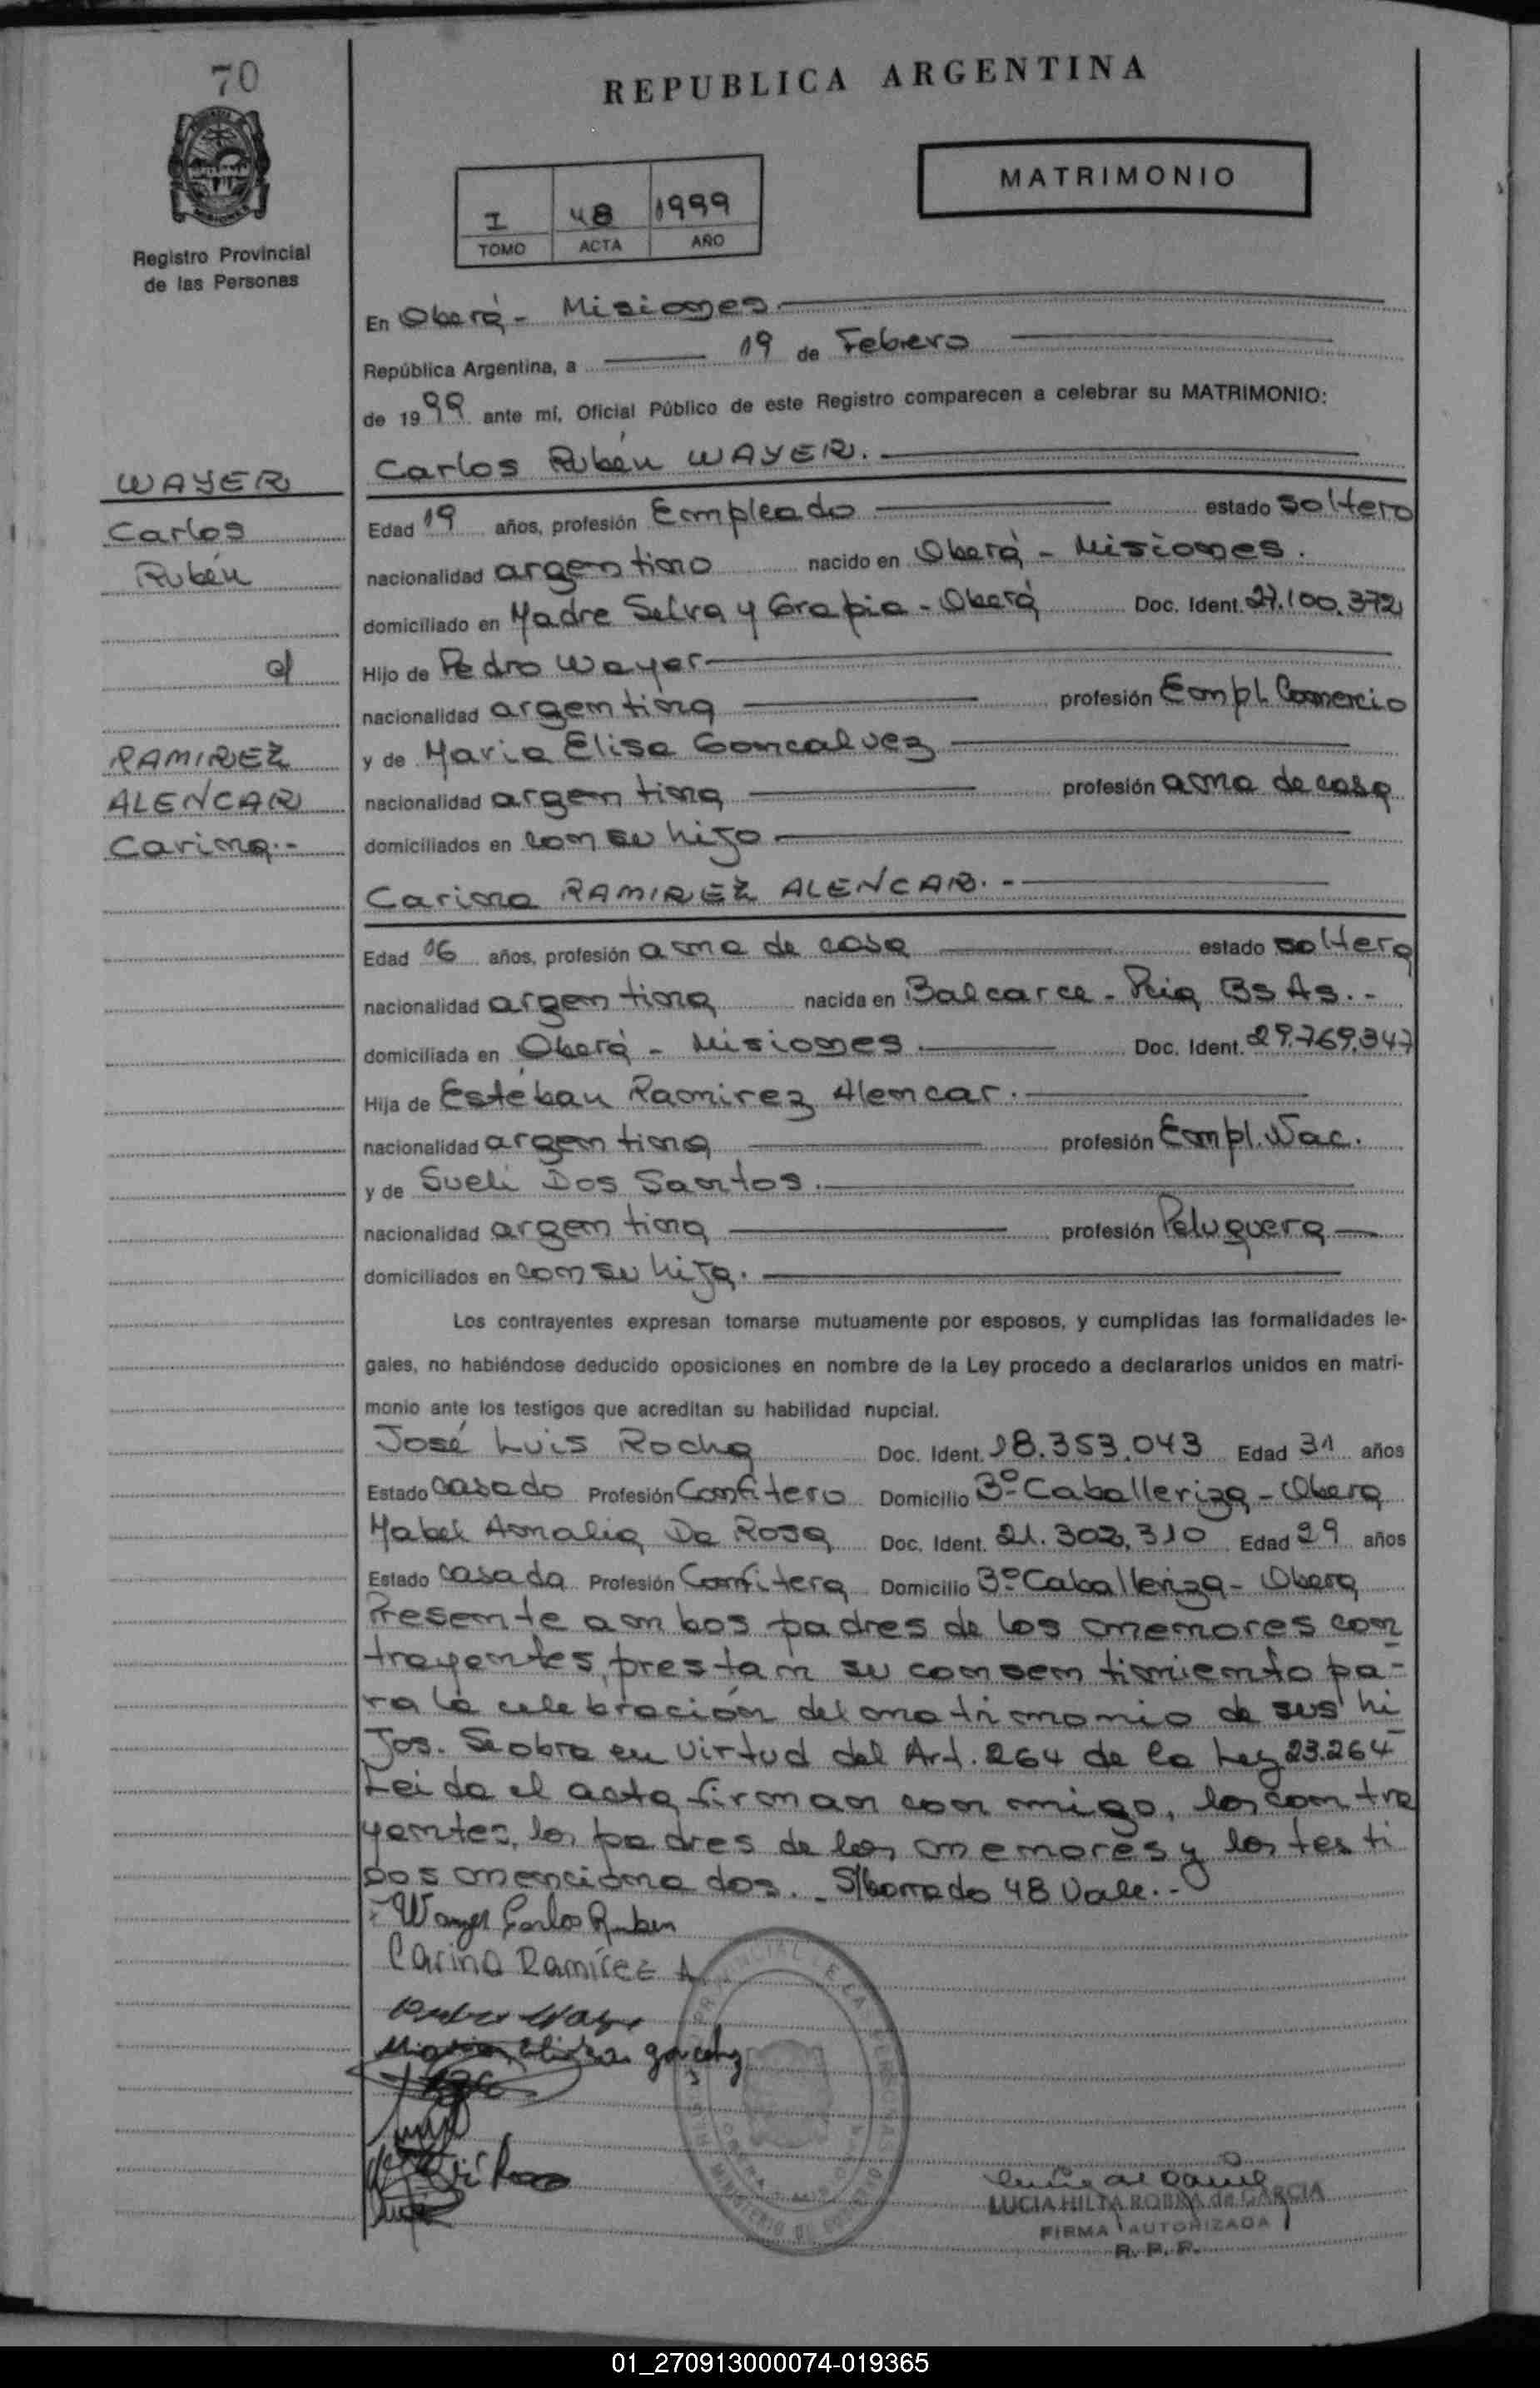 70
REPUBLICA ARGENTINA
MATRIMONIO
I 48 1999
TOMO ACTA AÑO
Registro Provincial
de las Personas
En Oberá - Misiones
República Argentina, a 19 de Febrero
de 1999 ante mí, Oficial Público de este Registro comparecen a celebrar su MATRIMONIO:
Carlos Rubén WAYER.
WAYER
Carlos
Rubén
c/
RAMIREZ
ALENCAR
Carina.-
Edad 19 años, profesión Empleado estado soltero
nacionalidad argentino nacido en Oberá - Misiones.
domiciliado en Madre Selva y Grapia - Oberá Doc. Ident. 27.100.372
Hijo de Pedro Wayer
nacionalidad argentina profesión Empl. Comercio
y de Maria Elisa Goncalvez
nacionalidad argentina profesión ama de casa
domiciliados en con su hijo
Carina RAMIREZ ALENCAR.-
Edad 16 años, profesión ama de casa estado soltera
nacionalidad argentina nacida en Balcarce - Pcia Bs As.-
domiciliada en Oberá - Misiones. Doc. Ident. 29.769.347
Hija de Estéban Ramirez Alencar.
nacionalidad argentina profesión Empl. Nac.
y de Sueli Dos Santos.
nacionalidad argentina profesión Peluquera
domiciliados en con su hija.
Los contrayentes expresan tomarse mutuamente por esposos, y cumplidas las formalidades le-
gales, no habiéndose deducido oposiciones en nombre de la Ley procedo a declararlos unidos en matri-
monio ante los testigos que acreditan su habilidad nupcial.
José Luis Rocha Doc. Ident. 18.353.043 Edad 31 años
Estado casado Profesión Confitero Domicilio 3º Caballeriza - Obera
Mabel Amalia Da Rosa Doc. Ident. 21.302.310 Edad 29 años
Estado casada Profesión Confitera Domicilio 3º Caballeriza - Obera
Presente ambos padres de los menores con
trayentes, prestan su consentimiento pa-
ra la celebración del matrimonio de sus hi
jos. Se obra en virtud del Art. 264 de la Ley 23.264
Leida el acta firman con migo, los contra
yentes, los padres de los menores y los testi
gos menciona dos. - S/borrado 48 Vale.-
Wayer Carlos Ruben
Carina Ramírez A
LUCIA HILDA ROBRA de GARCIA
FIRMA AUTORIZADA
R. P. P.
01_270913000074-019365